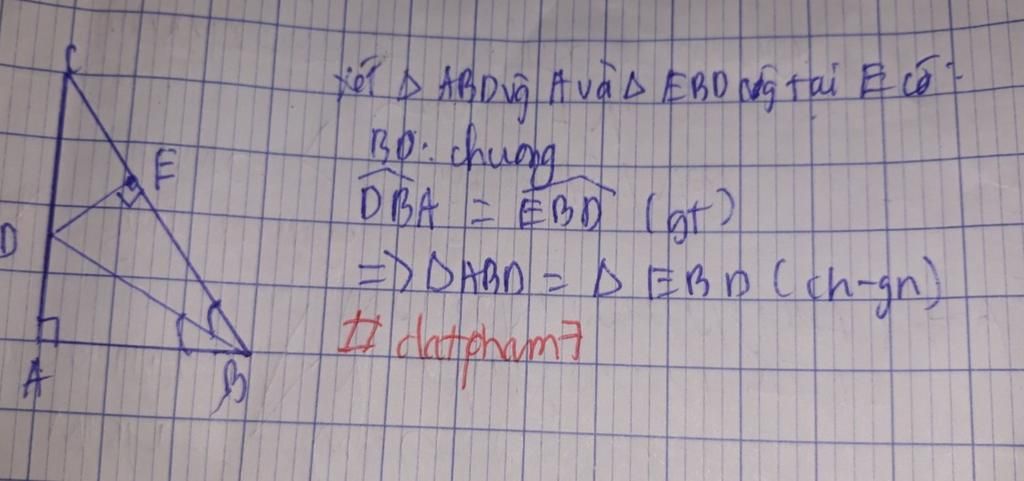 C
Xét Δ ABD vg A và Δ EBD vg tại E có:
E
BD: chung
DBA = EBD (gt)
D
=> ΔABD = Δ EBD (ch-gn)
# datpham7
A
B